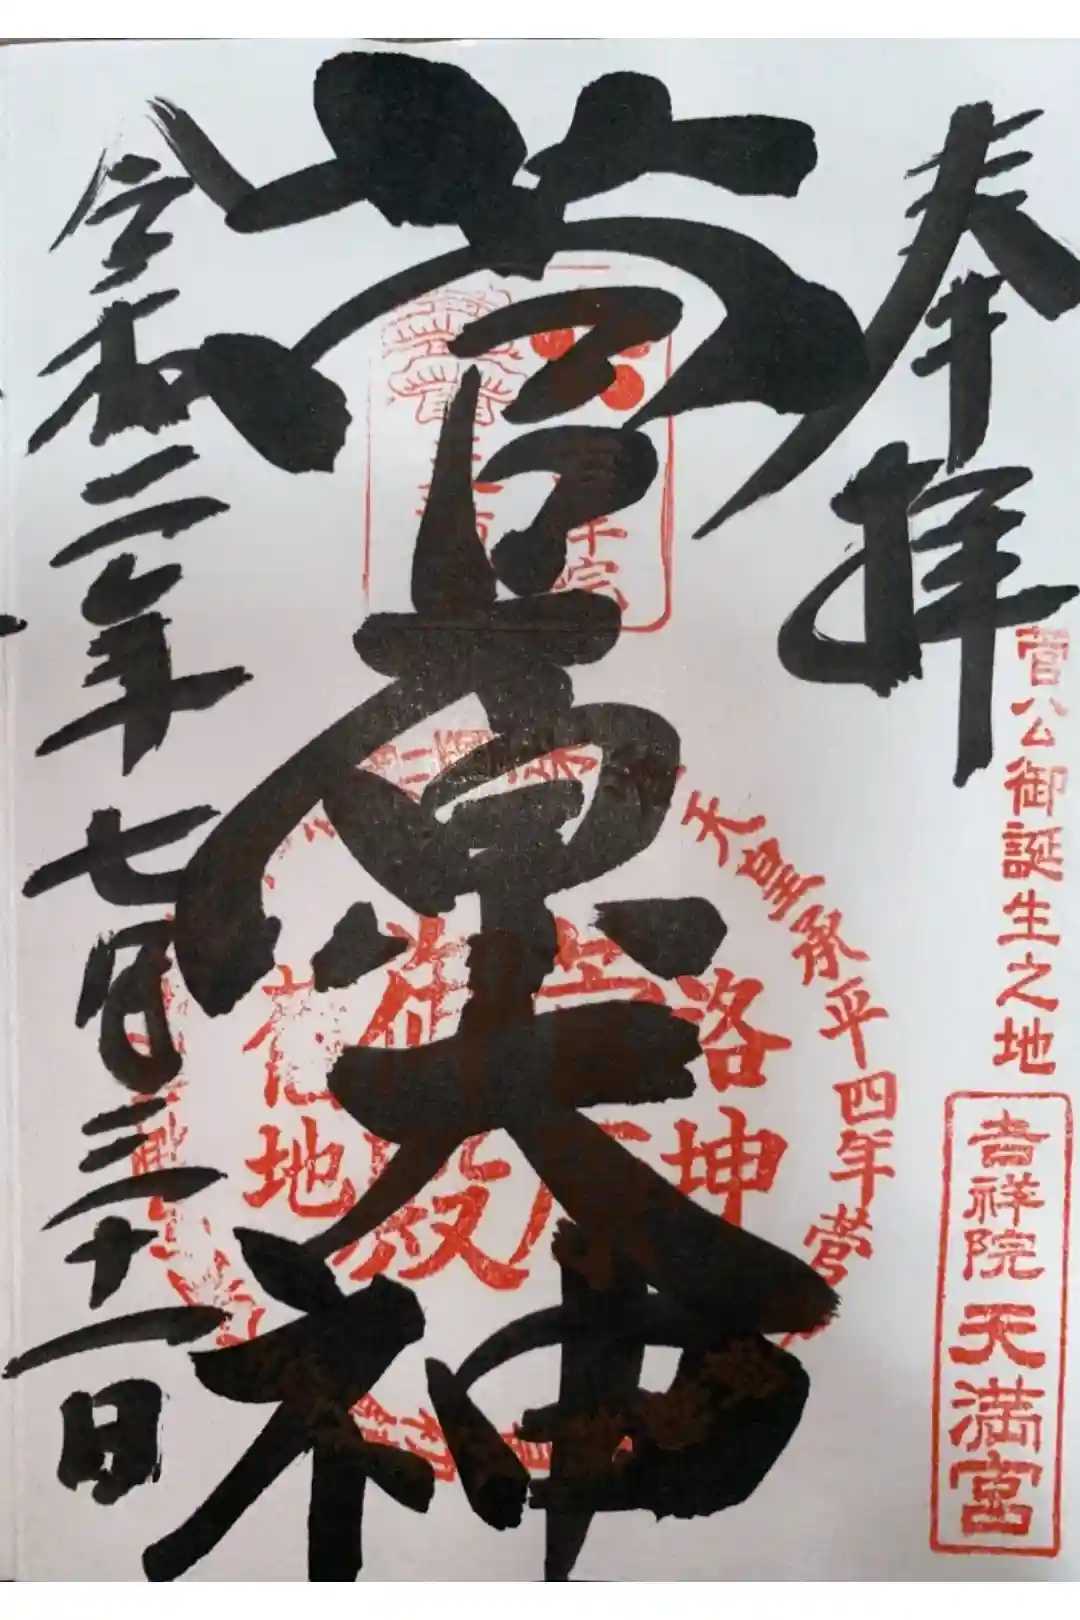 奉拝
菅公御誕生之地
吉祥院天満宮
菅原大神
天皇承平四年営
洛
坤
地
令和二年七月三十一日